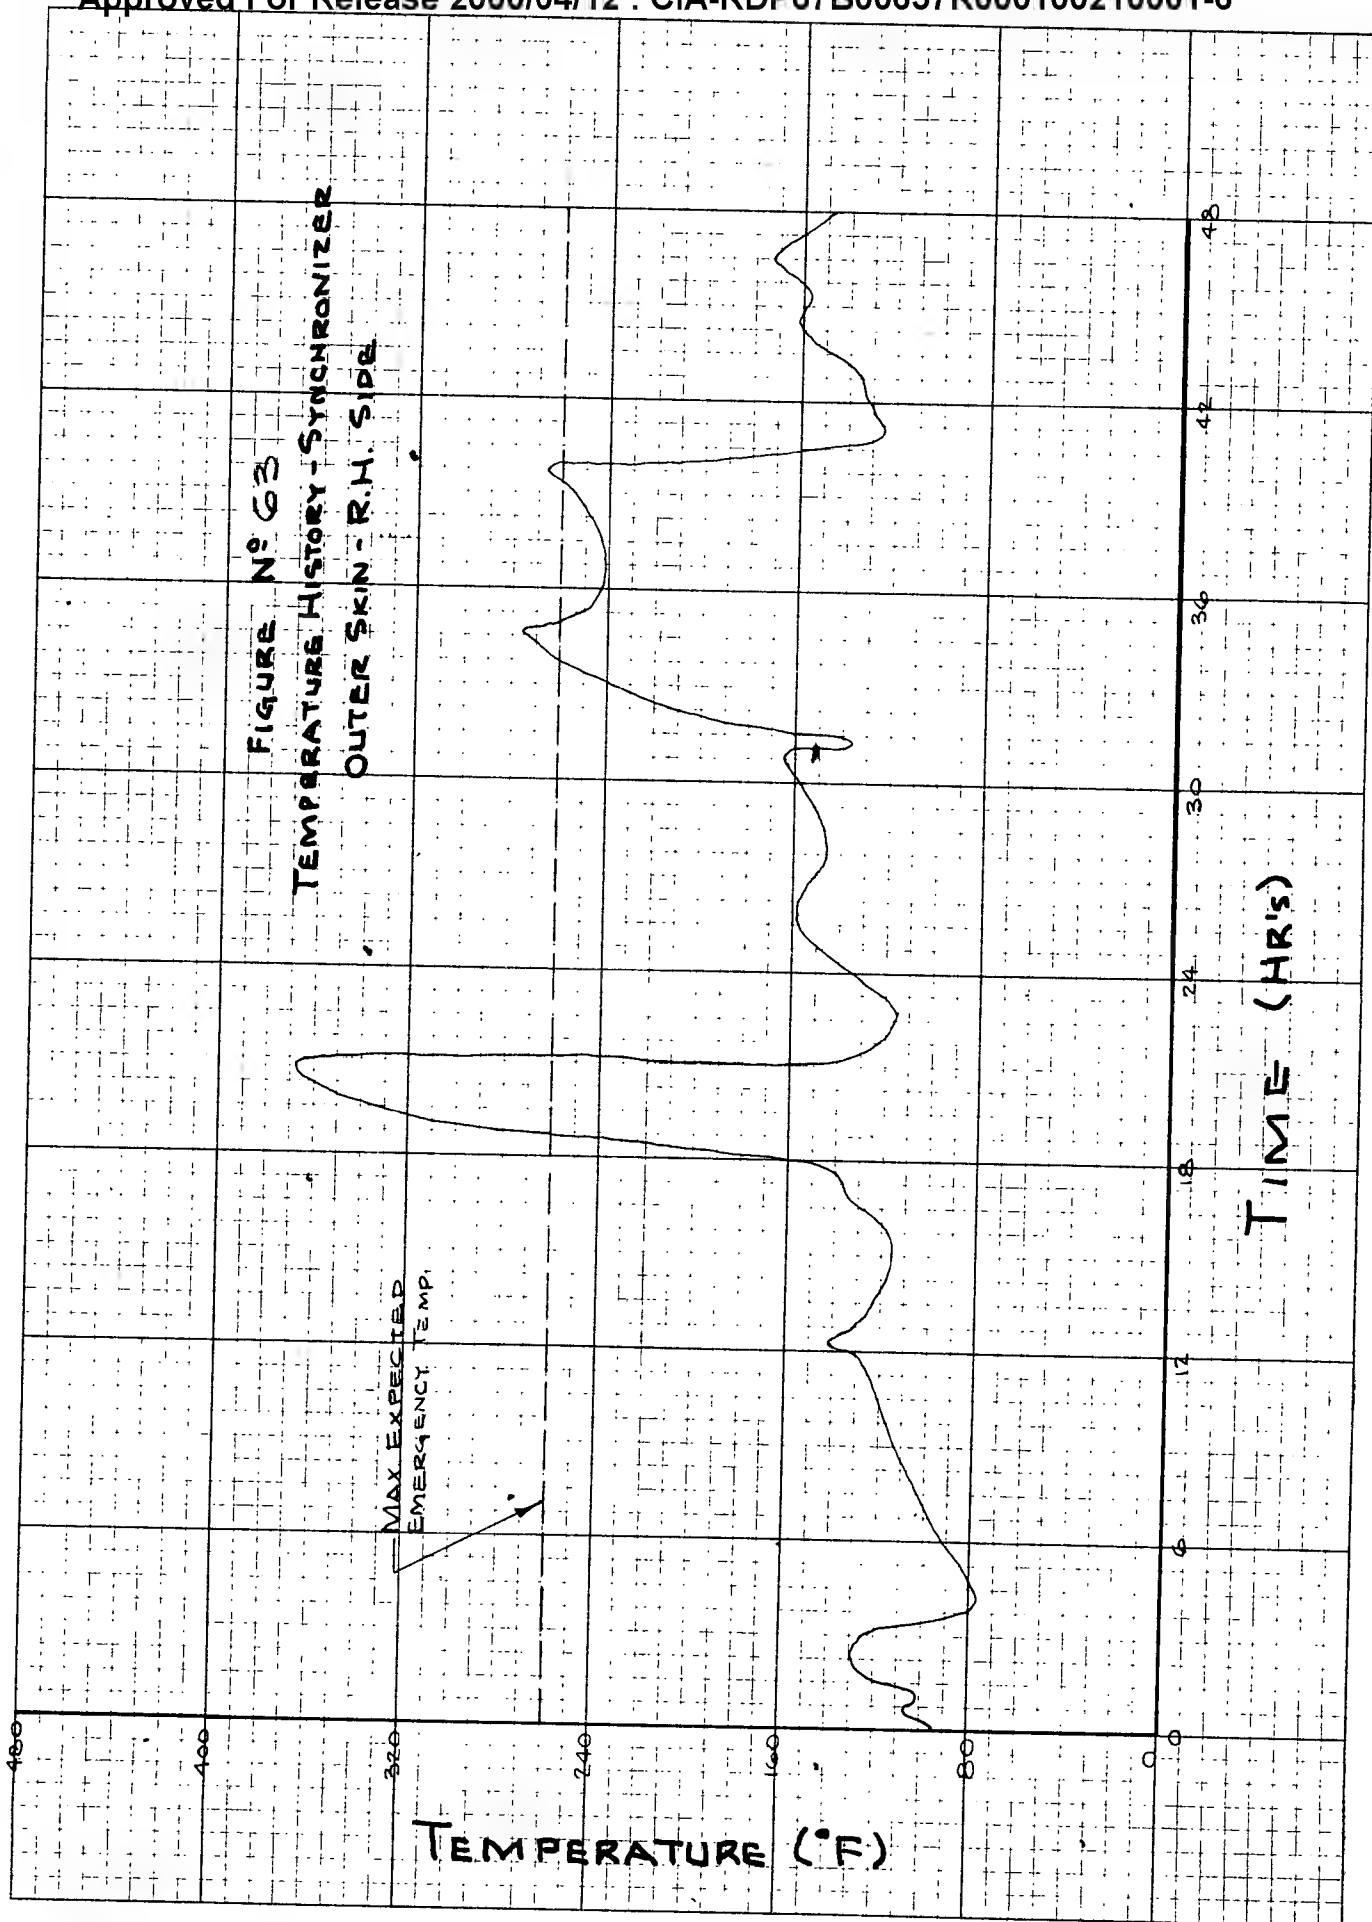 Approved For Release 2000/04/12 : CIA-RDP67B00657R000100210001-6
FIGURE Nº 63
TEMPERATURE HISTORY - SYNCHRONIZER
OUTER SKIN - R.H. SIDE
MAX EXPECTED
EMERGENCY TEMP.
480
400
320
240
160
80
0
TEMPERATURE (°F)
0
6
12
18
24
30
36
42
48
TIME (HR's)